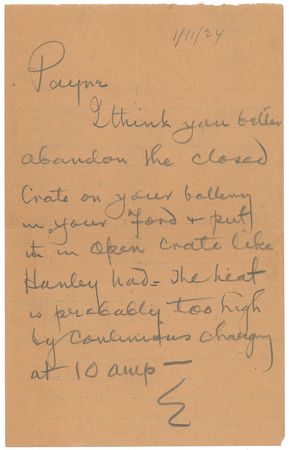 1/11/24
Payne
I think you better
abandon the closed
Crate on your battery
in your Ford & put
it in open crate like
Hanley had = The heat
is probably too high
by Continuous charging
at 10 amp —
E